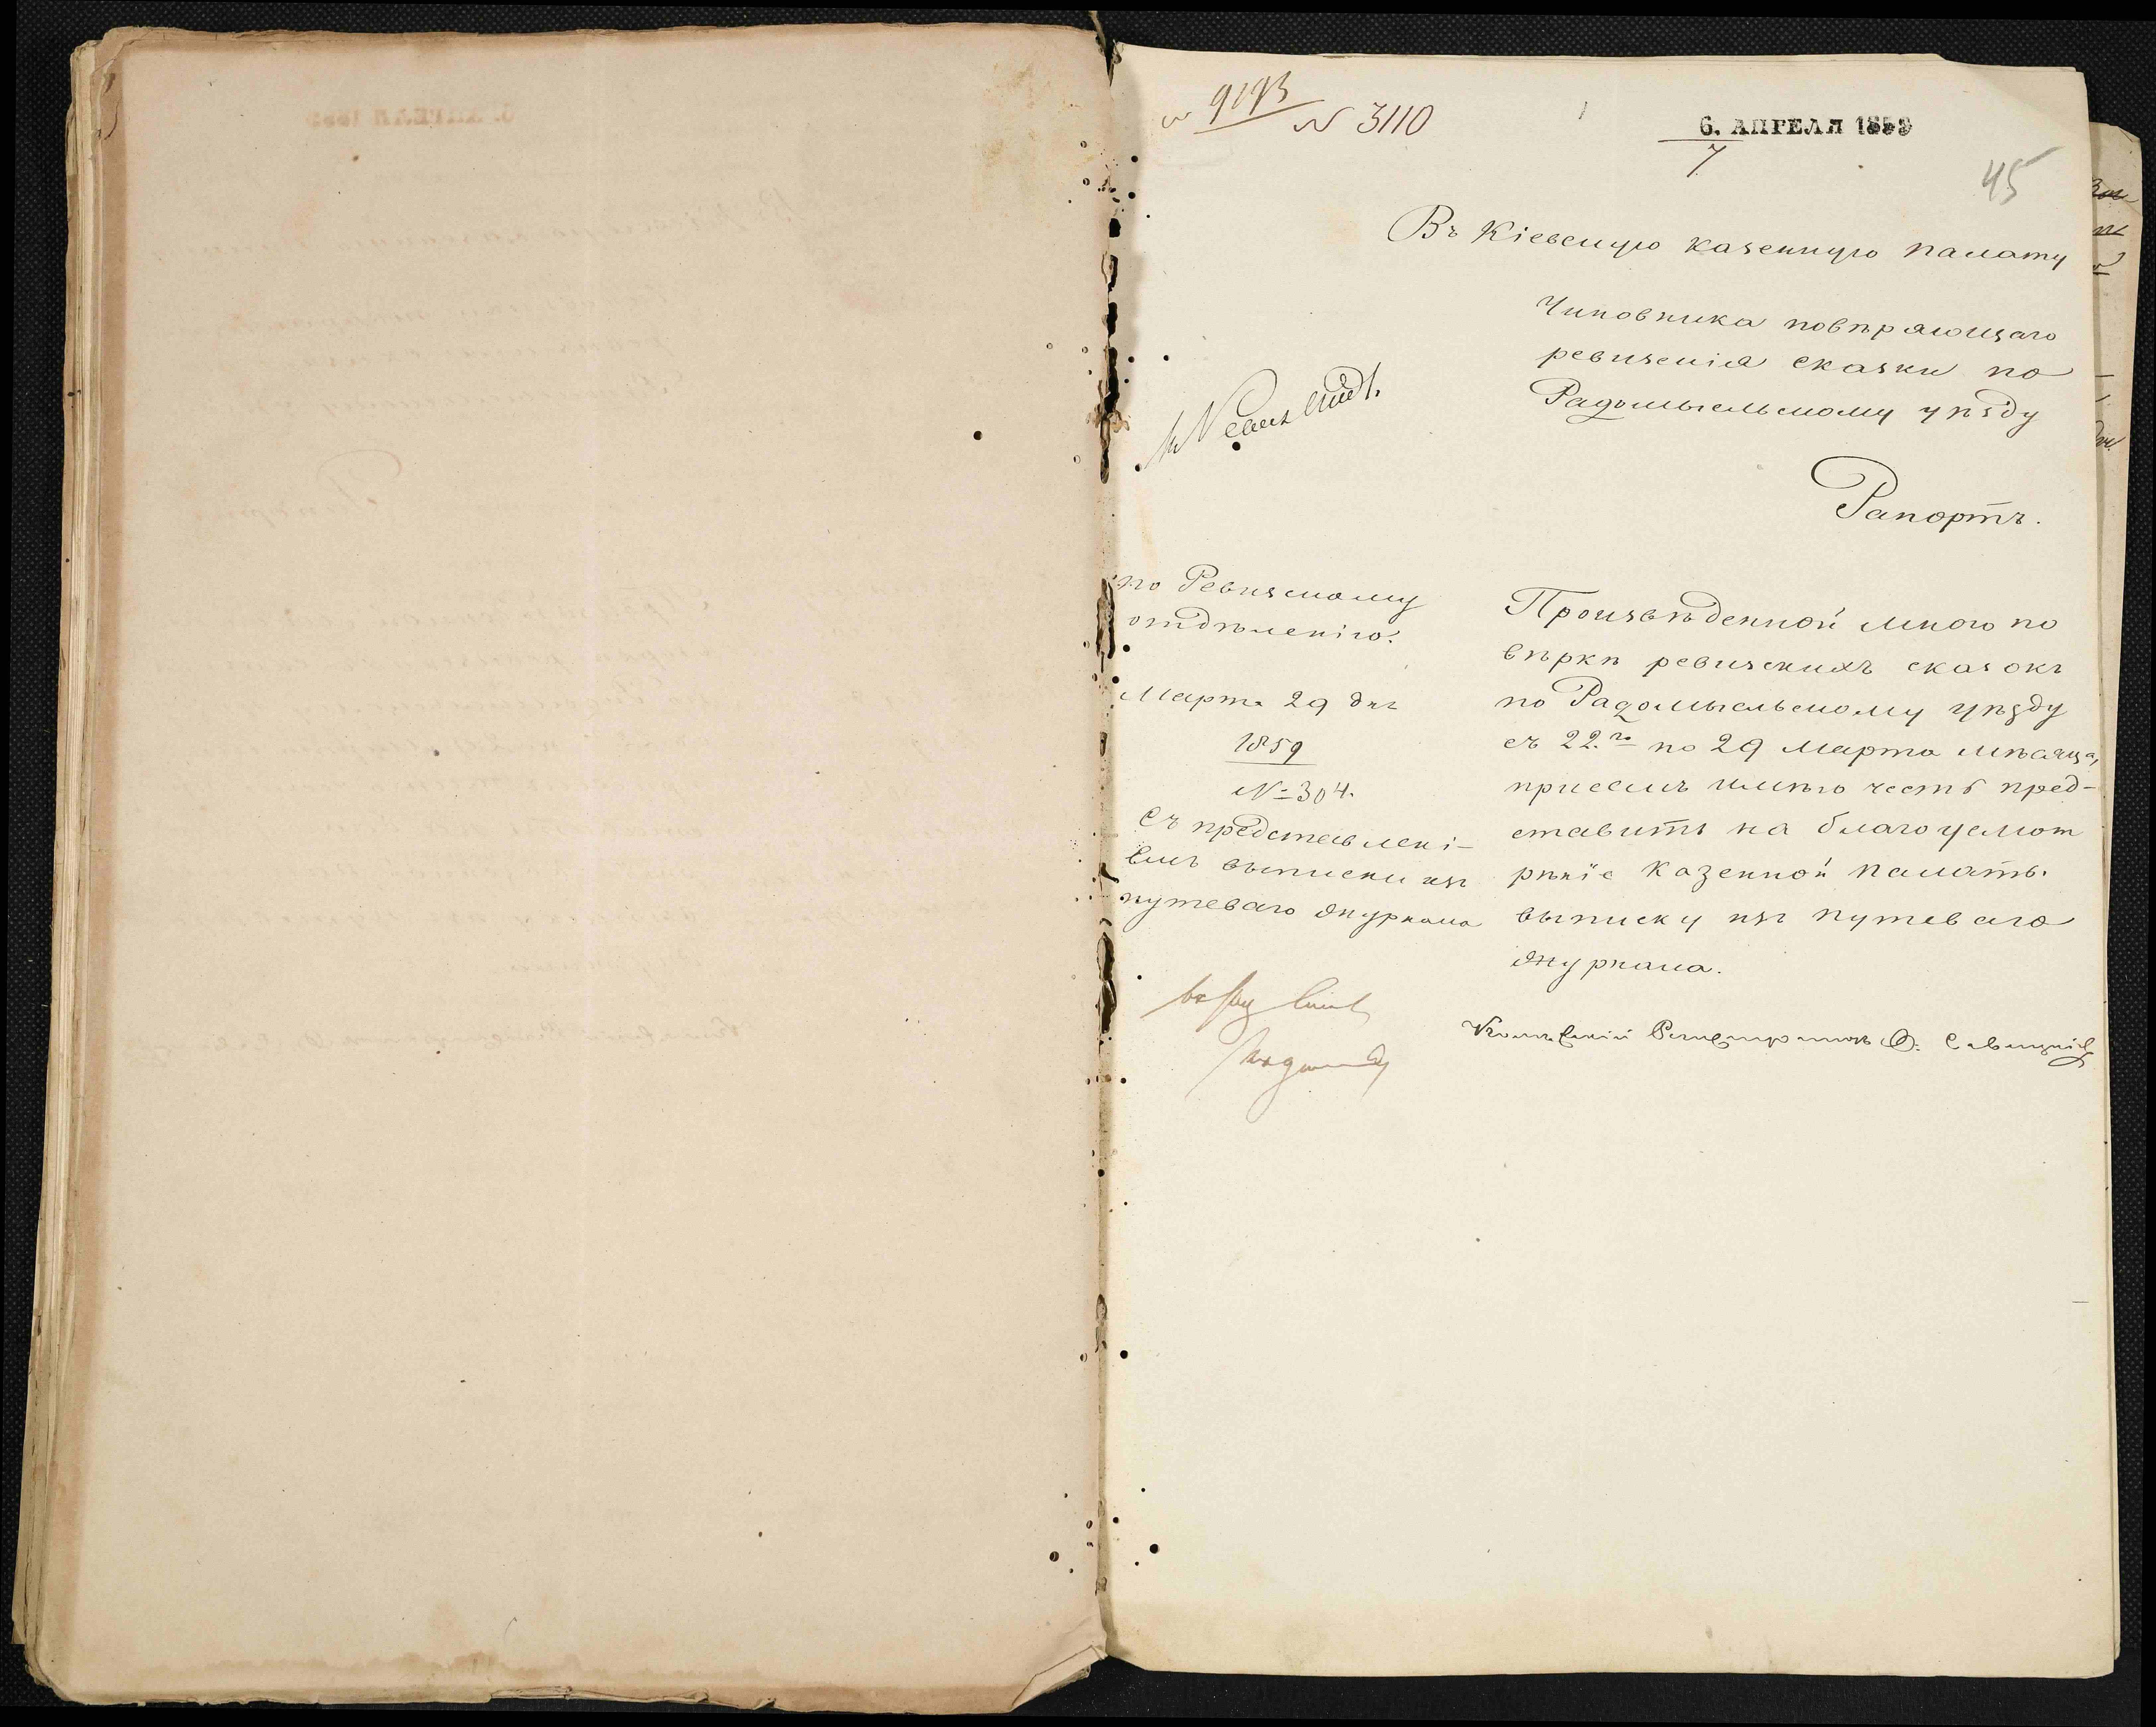 9193 N 3110
6. АПРЕЛЯ 1859
7
45
Въ Кіевскую казенную палату
Чиновника повѣряющаго
ревизскія сказки по
Радомысльскому уѣзду
Рапортъ.
по Ревизскому
отдѣленію.
Марта 29 дня
1859
№ 304.
Съ представлені-
емъ выписки изъ
путеваго журнала
Произвѣденной мною по
вѣркѣ ревизскихъ сказокъ
по Радомысльскому уѣзду
съ 22.го по 29 Марта мѣсяца,
присемъ имѣю честь пред-
ставить на благоусмот
рѣніе Казенной Палаты.
выписку изъ путеваго
журнала.
Регистраторъ